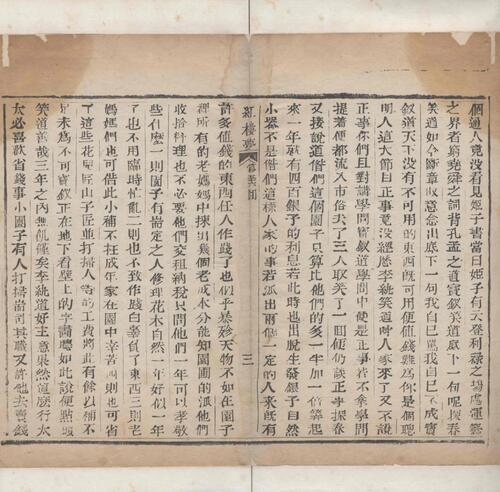 個通人竟沒看見姬子書當日姬子有云登利祿之場處運籌
之界者窮堯舜之詞背孔孟之道寶釵笑道底下一句呢探春
笑道如今斷章取意念出底下一句我自己罵我自己不成寶
釵道天下沒有不可用的東西既可用便值錢難為你是個聰
明人這大節目正事竟沒經歷李紈笑道叫人家來了又不說
正事你們且對講學問寶釵道學問中便是正事若不拿學問
提著便都流入市俗去了三人取笑了一回便仍談正事探春
又接說道偺們這個園子只算比他們的多一半加一倍算起
來一年就有四百銀子的利息若此時也出脫生發銀子自然
小器不是偺們這樣人家的事若派出兩個一定的人來既有
紅樓夢 第五六回 三
許多值錢的東西任人作踐了也似乎暴殄天物不如在園子
裡所有的老媽媽中揀出幾個老成本分能知園圃的派他們
收拾料理也不必要他們交租納稅只問他們一年可以孝敬
些什麼一則園子有耑定之人修理花木自然一年好似一年
了也不用臨時忙亂二則也不致作踐白辜負了東西三則老
媽媽們也可借此小補不枉成年家在園中辛苦四則也可省
了這些花兒匠山子匠並打掃人等的工費將此有餘以補不
足未為不可寶釵正在地下看壁上的字畫聽如此說便點頭
笑道善哉三年之內無饑饉矣李紈道好主意果然這麼行太
太必喜歡省錢事小園子有人打掃耑司其職又許他去賣錢